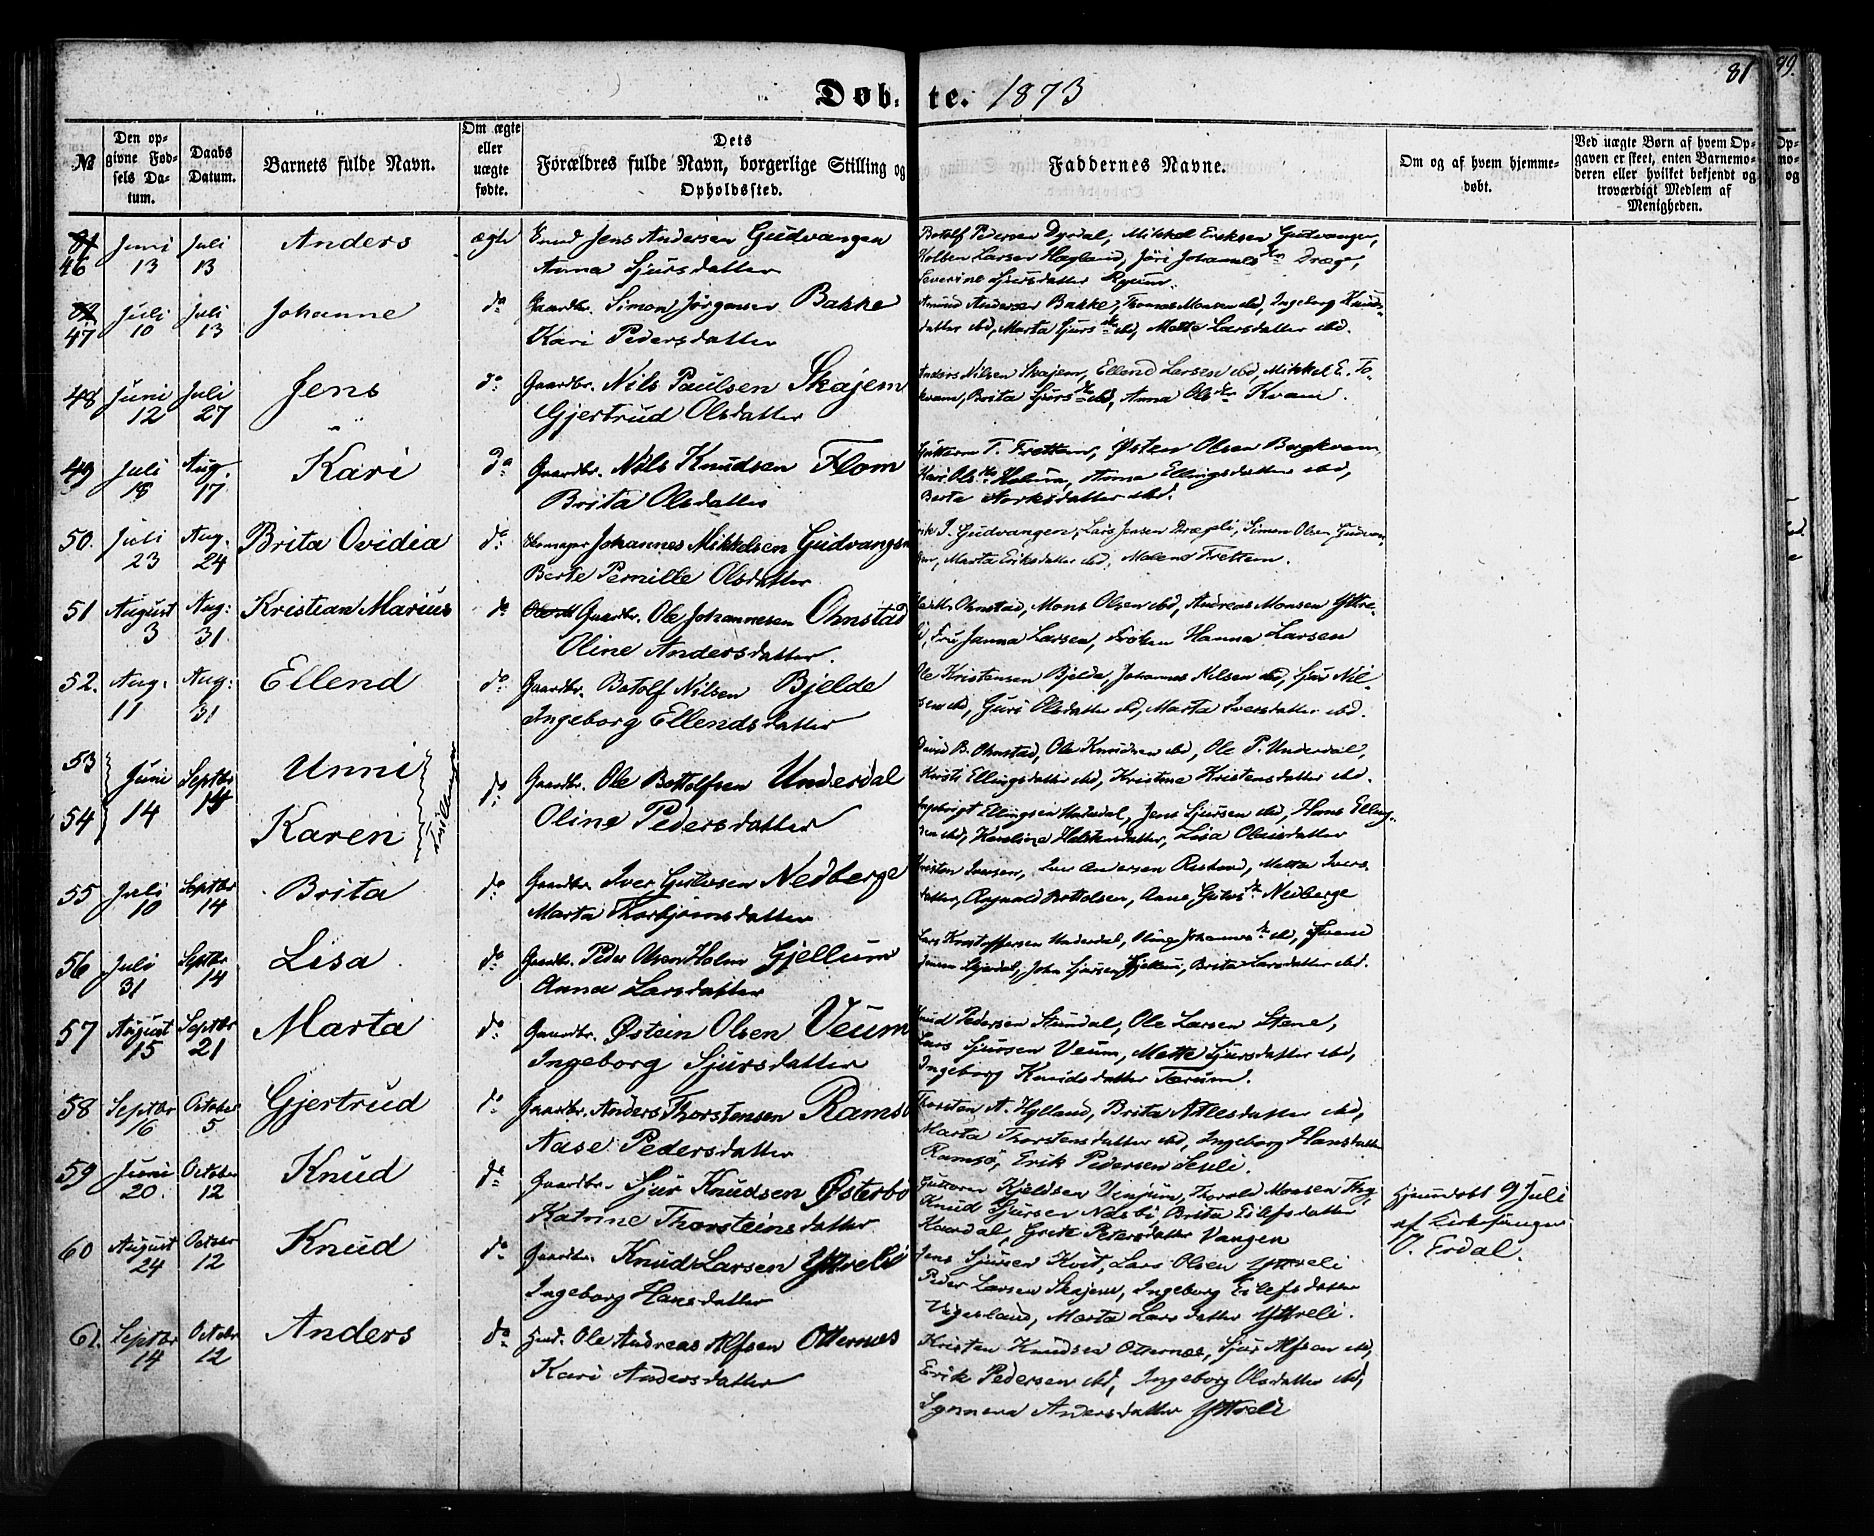 Døb- te. 1873
81
99.
№
Den opgivne Fødsels Datum.
Daabs Datum.
Barnets fulde Navn.
Om ægte eller uægte fødte.
Dets Forældres fulde Navn, borgerlige Stilling og Opholdssted.
Faddernes Navne.
Om og af hvem hjemmedøbt.
Ved uægte Børn af hvem Opgaven er skeet, enten Barnemoderen eller hvilket bekjendt og troværdigt Medlem af Menigheden.
46 Juni 13 Juli 13 Anders ægte Jens Andersen Gudvangen
Anna Sjursdatter
Botolf Pedersen Dyrdal, Mikkel Eriksen Gudvangen,
Kolben Larsen Hagland, Jóri Johannesdtr Drægo,
Severine Sjursdatter Ryum.
47 Juli 10 Juli 13 Johanne do Gaardbr. Simon Jørgensen Bakke
Kari Pedersdatter
Amund Andersen Bakke, Thomas Monsen ibd, Ingeborg Knuds-
datter ibd, Marta Sjursdtr ibd, Mette Larsdatter ibd.
48 Juni 12 Juli 27 Jens do Gaardbr. Nils Paulsen Skajem
Gjertrud Olsdatter
Anders Nilsen Skajem, Ellend Larsen ibd, Mikkel E. To-
kvam, Brita Sjursdtr ibd, Anna Olsdtr Kvam.
49 Juli 18 Aug. 17 Kari do Gaardbr. Nils Knudsen Flom
Brita Olsdatter
Guttorm T. Frettem, Østen Olsen Bergkvam,
Kari Olsdtr, Anna Ellingsdatter ibd,
Berte datter ibd.
50. Juli 23 Aug. 24 Brita Ovidia do Skomager Johannes Mikkelsen Gudvangen
Berte Pernille Olsdatter
Erik J. Gudvangen, Lars Jensen Drægli, Simon Olsen Gudvan-
gen, Marta Eriksdatter ibd, Malene Frettem.
51 August 3 Aug: 31. Kristian Marius do Gaardbr. Ole Johannesen Ohnstad
Oline Andersdatter.
Ohnstad, Mons Olsen ibd, Andreas Monsen Yttre-
li, Fru Janna Larsen, Frøken Hanna Larsen
52. Aug. 11 Aug: 31 Ellend do Gaardbr. Botolf Nilsen Bjelde
Ingeborg Ellendsdatter
Ole Kristensen Bjelde, Johannes Nilsen ibd, Sjur Nil-
sen ibd, Guri Olsdatter ibd, Marta Iversdatter ibd.
53 Unni
54 Juni 14 Septbr 14 Karen Tvillinger do Gaardbr. Ole Bottolfsen Underdal
Oline Pedersdatter
David B. Ohnstad, Ole Knudsen ibd, Ole P. Underdal,
Kersti Ellingsdatter ibd, Kristine Kristensdatter ibd.
Ingebrigt Ellingsen Underdal, Jens Sjursen ibd, Hans Elling-
sen ibd, Karoline datter, Lisa Olsdatter
55 Juli 10 Septbr 14 Brita do Gaardbr. Iver Gulvsen Nedberge
Marta Thorbjørnsdatter
Kristen Iversen, Iver Andersen, Metta Ivers-
datter, Ragnald Bottolsen, Anne dtr Nedberge
56 Juli 31 Septbr 14 Lisa do Gaardbr. Peder Olsen Holm Gjellum
Anna Larsdatter
Lars Kristoffersen Underdal, Johannesdtr ibd,
John Sjursen Gjellum, Brita Larsdatter ibd.
57 August 15 Septbr 21 Marta do Gaardbr. Østein Olsen Veum
Ingeborg Sjursdatter
Knud Pedersen Stundal, Ole Larsen Stene,
Lars Sjursen Veum, Mette Sjursdatter ibd,
Ingeborg Knudsdatter Tærum.
58 Septbr 6 October 5 Gjertrud do Gaardbr. Anders Thorstensen Ramsö
Aase Pedersdatter
Thorsten A. Hylland, Brita Nilsdatter ibd,
Marta Thorstensdatter ibd, Ingeborg Hansdatter
Ramsö, Erik Pedersen Scseli.
59 Juni 20. October 12 Knud do Gaardbr. Sjur Knudsen Østerbo
Katrine Thorsteinsdatter
Guttorm Kjeldsen Vinjum, Thorald Monsen
Knud Sjursen Nesbö, Brita Eilefsdatter
Kaardal, Grete Petersdatter Vangen
Hjemmedøbt 9 Juli
af Kirkesanger
O. Erdal.
60 August 24 October 12 Knud do Gaardbr. Knud Larsen Yttreli
Ingeborg Hansdatter
Jens Sjursen Kvit, Lars Olsen Yttreli
Peder Larsen Skajem, Ingeborg Eilefsdatter
Vigesland, Marta Larsdatter Yttreli.
61. Septbr 14 October 12 Anders do Husmd. Ole Andreas Alfsen Otternes
Kari Andersdatter
Kristen Knudsen Otternes, Sjur Alfsen ibd,
Erik Pedersen ibd, Ingeborg Olsdatter ibd,
Synneva Andersdatter Yttreli